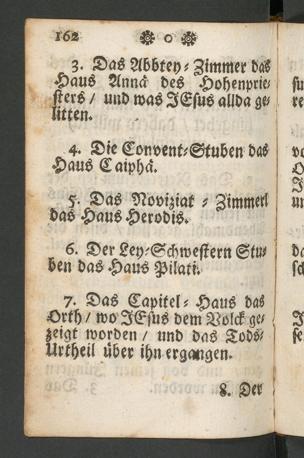 162 ❁ o ❁
3. Das Abbtey-Zimmer das
Haus Annä des Hohenprie-
sters / und was JEsus allda ge-
litten.
4. Die Convent-Stuben das
Haus Caiphä.
5. Das Noviziat-Zimmerl
das Haus Herodis.
6. Der Ley-Schwestern Stu-
ben das Haus Pilati.
7. Das Capitel-Haus das
Orth / wo JEsus dem Volck ge-
zeigt worden / und das Tods-
Urtheil über ihn ergangen.
8. Der